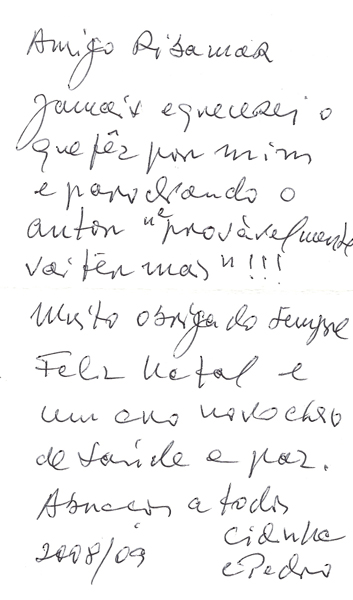 Amigo Ribamar
Jamais equecerei o
que fêz por mim
e parodiando o
autor "e provávelmente
vai têr mas"!!!
Muito obrigado sempre
Feliz Natal e
um ano novo cheio
de saúde e paz.
Abraços a todos
Cidinha
2008/09
e Pedro